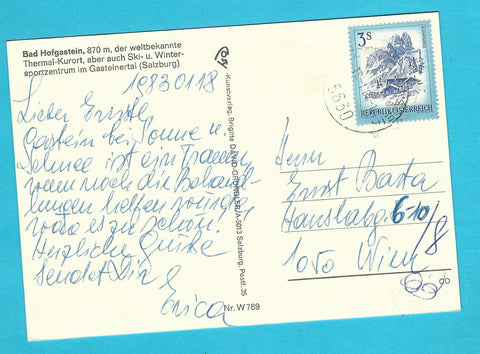 Bad Hofgastein, 870 m, der weltbekannte
Thermal-Kurort, aber auch Ski- u. Winter-
sportzentrum im Gasteinertal (Salzburg)
19830118
Lieber Ernstl,
Gastein bei Sonne u.
Schnee ist ein Traum
wenn noch die Behand-
lungen helfen würden
wäre es zu schön!
Herzliche Grüße
sendet Dir
Erica
Kunstverlag, Brigitte
A-5013 Salzburg, Postf. 35
Nr. W 789
3S
REPUBLIK ÖSTERREICH
5630
Herrn
Ernst Barta
610/8
1050 Wien